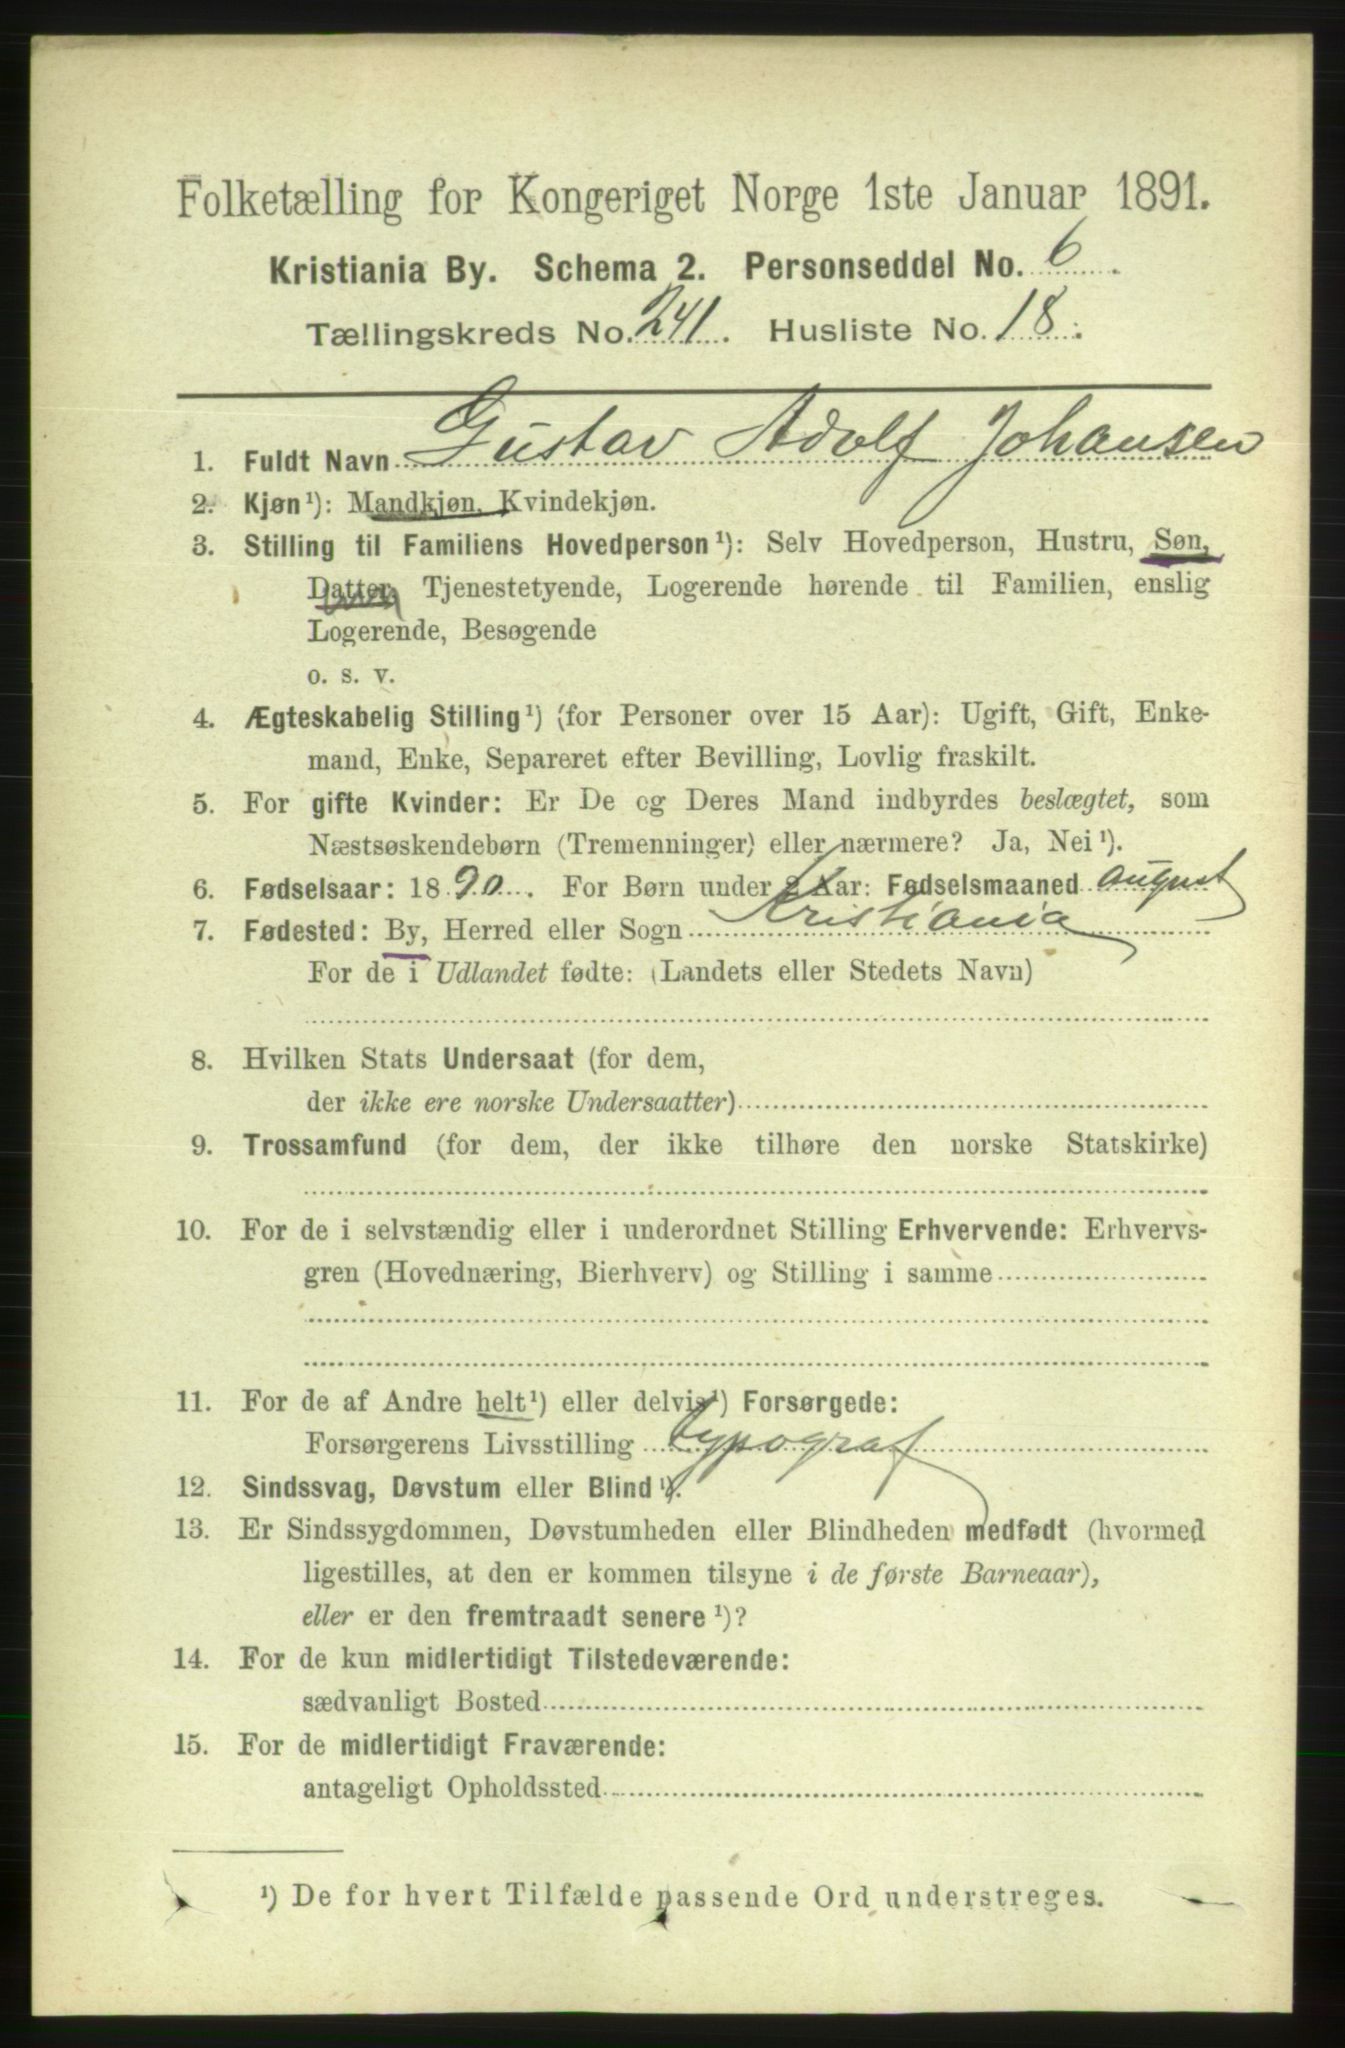 Folketælling for Kongeriget Norge 1ste Januar 1891.
Kristiania By. Schema 2. Personseddel No. 6
Tællingskreds No. 241. Husliste No. 18.
1. Fuldt Navn Gustav Adolf Johansen
2. Kjøn¹): Mandkjøn, Kvindekjøn.
3. Stilling til Familiens Hovedperson¹): Selv Hovedperson, Hustru, Søn,
Datter, Tjenestetyende, Logerende hørende til Familien, enslig
Logerende, Besøgende
o. s. v.
4. Ægteskabelig Stilling¹) (for Personer over 15 Aar): Ugift, Gift, Enke-
mand, Enke, Separeret efter Bevilling, Lovlig fraskilt.
5. For gifte Kvinder: Er De og Deres Mand indbyrdes beslægtet, som
Næstsøskendebørn (Tremenninger) eller nærmere? Ja, Nei¹).
6. Fødselsaar: 1890. For Børn under 2 Aar: Fødselsmaaned august
7. Fødested: By, Herred eller Sogn Kristiania
For de i Udlandet fødte: (Landets eller Stedets Navn)
8. Hvilken Stats Undersaat (for dem,
der ikke ere norske Undersaatter)
9. Trossamfund (for dem, der ikke tilhøre den norske Statskirke)
10. For de i selvstændig eller i underordnet Stilling Erhvervende: Erhvervs-
gren (Hovednæring, Bierhverv) og Stilling i samme
11. For de af Andre helt¹) eller delvis¹) Forsørgede:
Forsørgerens Livsstilling typograf
12. Sindssvag, Døvstum eller Blind¹).
13. Er Sindssygdommen, Døvstumheden eller Blindheden medfødt (hvormed
ligestilles, at den er kommen tilsyne i de første Barneaar),
eller er den fremtraadt senere¹)?
14. For de kun midlertidigt Tilstedeværende:
sædvanligt Bosted
15. For de midlertidigt Fraværende:
antageligt Opholdssted
¹) De for hvert Tilfælde passende Ord understreges.